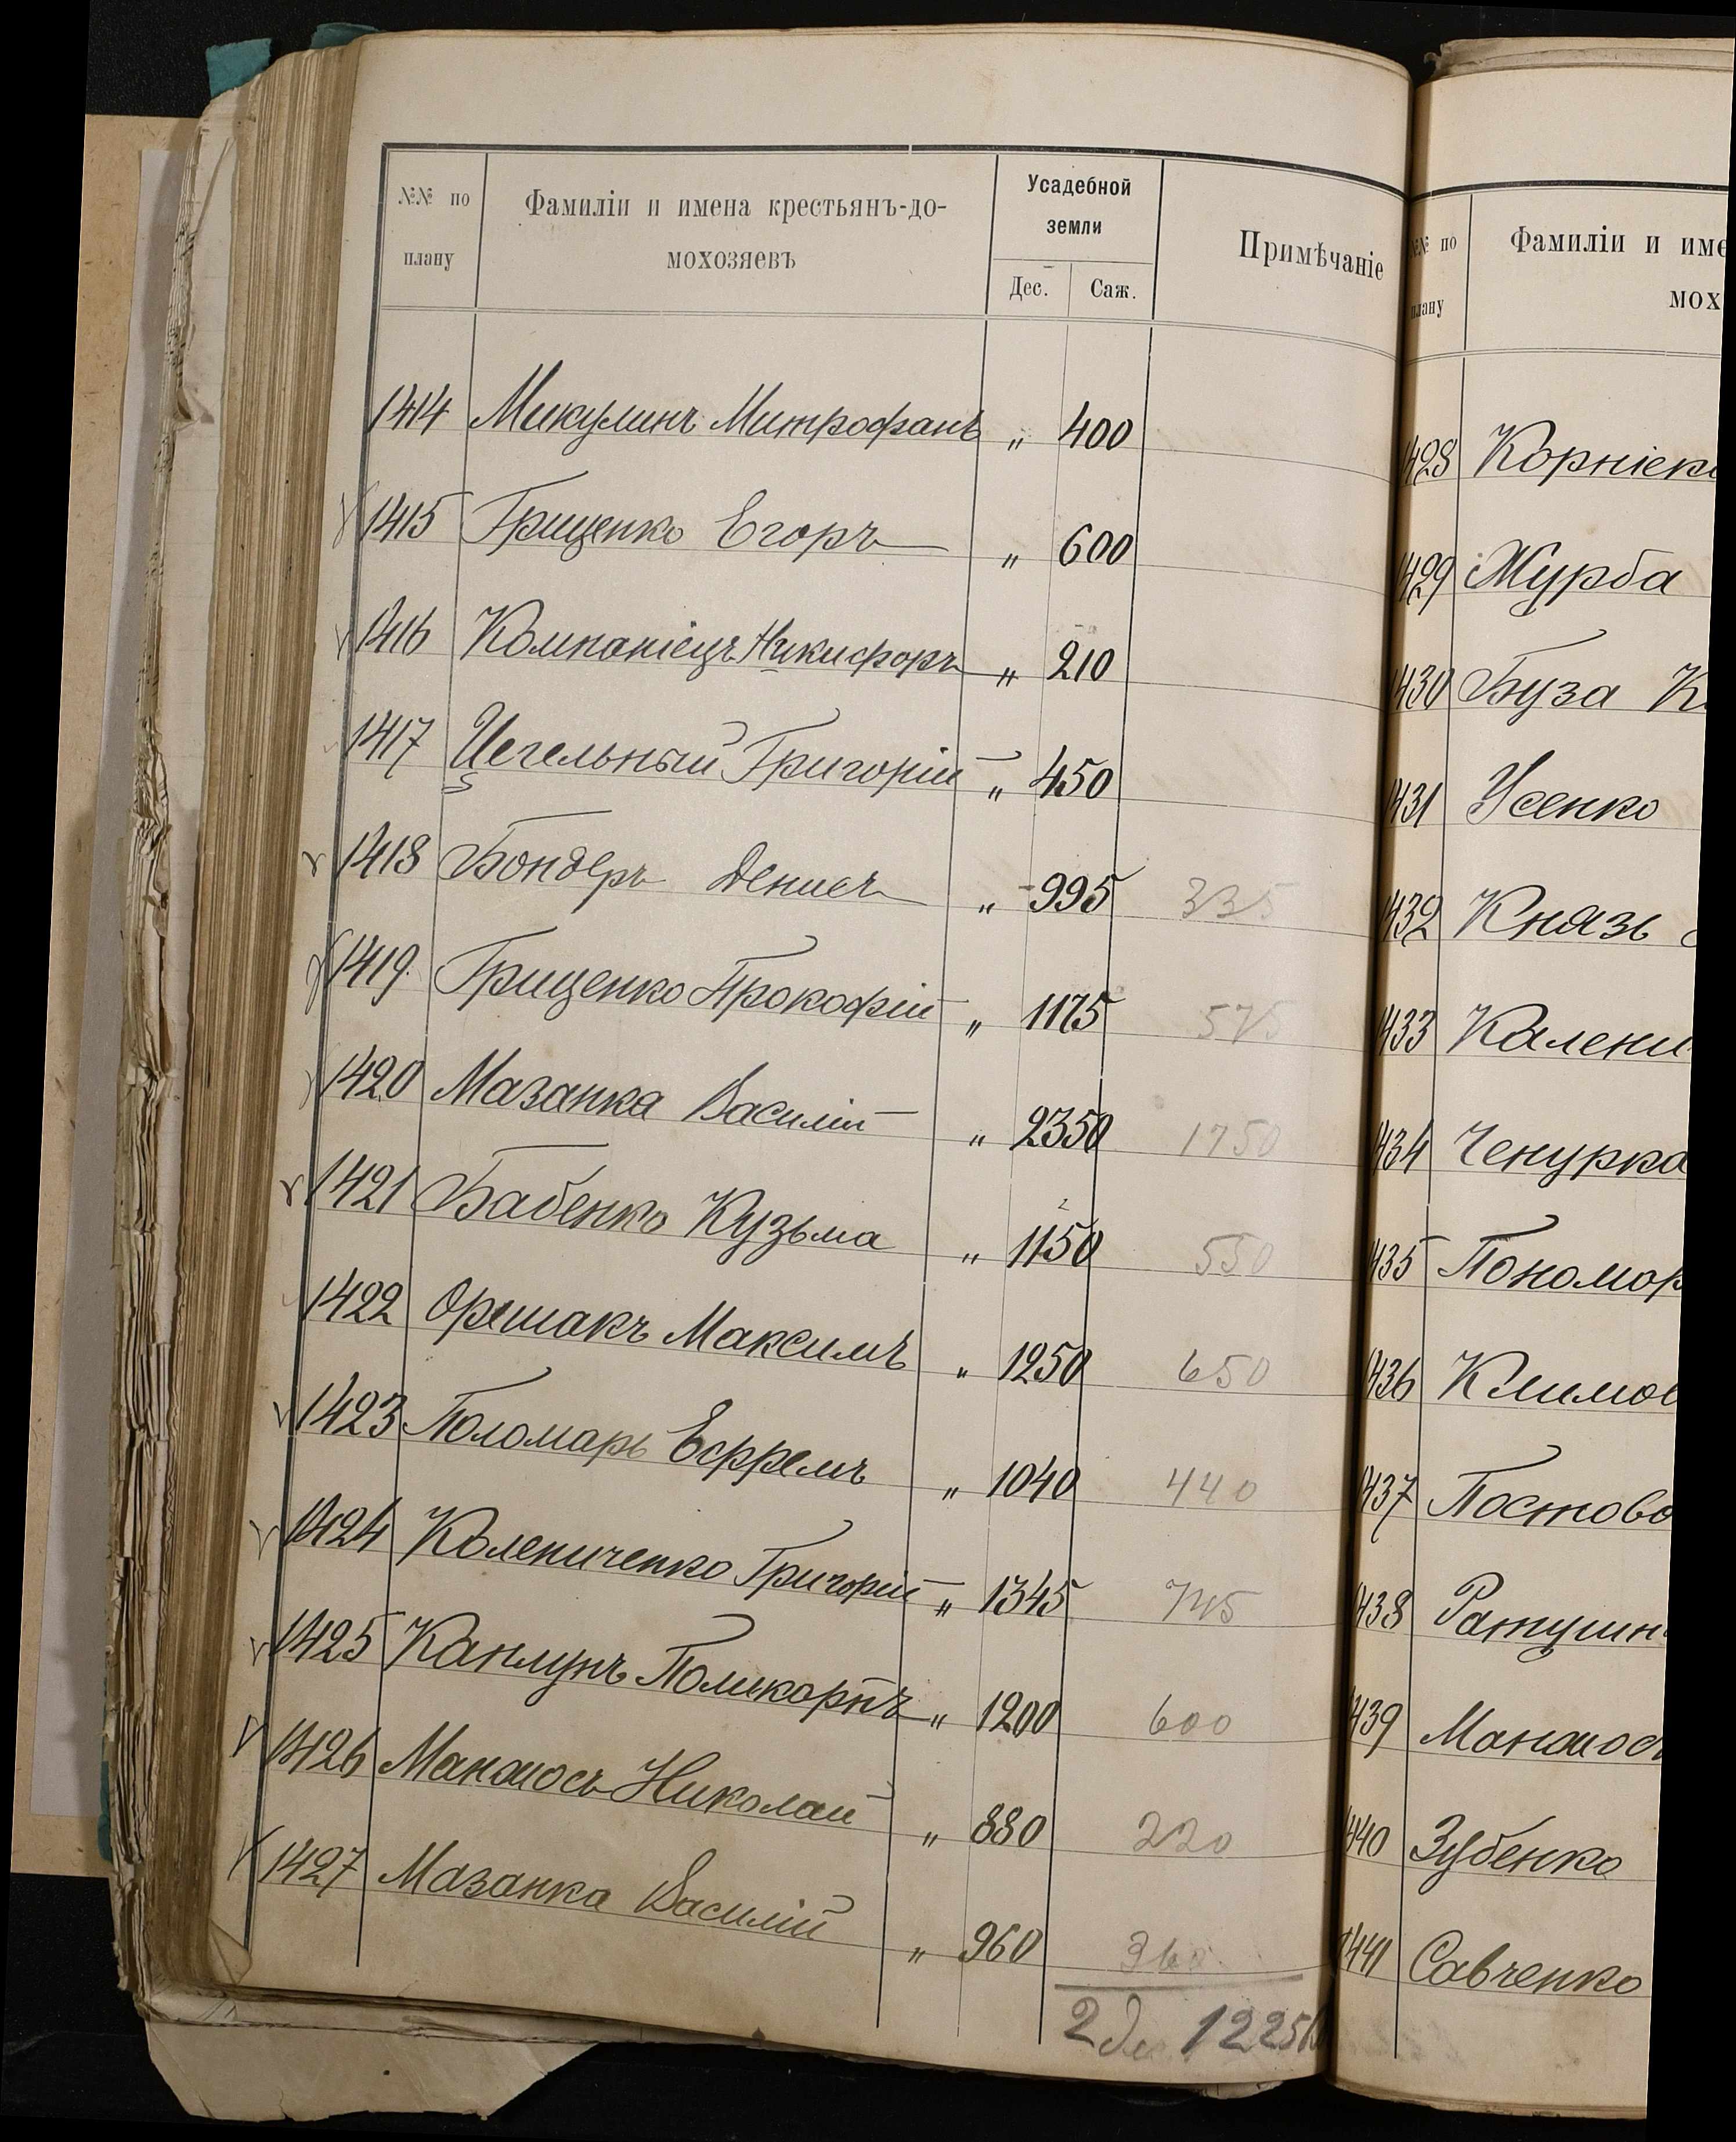 №№ по плану
Фамиліи и имена крестьянъ-до-
мохозяевъ
Усадебной
земли
Дес. Саж.
Примѣчаніе
1414 Микулинъ Митрофанъ „ 400
1415 Грищенко Егоръ „ 600
1416 Компаніецъ Никифоръ „ 210
1417 Цегельный Григорій „ 450
1418 Бондерь Денисъ „ 995 335
1419. Грищенко Прокофій „ 1175 575
1420 Мазанка Василій „ 2350 1750
1421 Бабенко Кузьма „ 1150 550
1422 Орешакъ Максимъ „ 1250 650
1423 Поломарь Ефремъ „ 1040 440
1424 Колениченко Григорій „ 1345 745
1425 Каплунъ Поликарпъ „ 1200 600
1426 Николай „ 880 220
1427 Мазанка Василій „ 960 360
2 де 1225
№№ по плану
Фамиліи и име
мох
428 Корніенк
429 Журба
430 Буза К
431 Усенко
432 Князь
433 Калени
434 Ченурка
435 Пономор
436 Климов
437 Постово
438 Ратушн
439
440 Зубенко
1441 Савченко